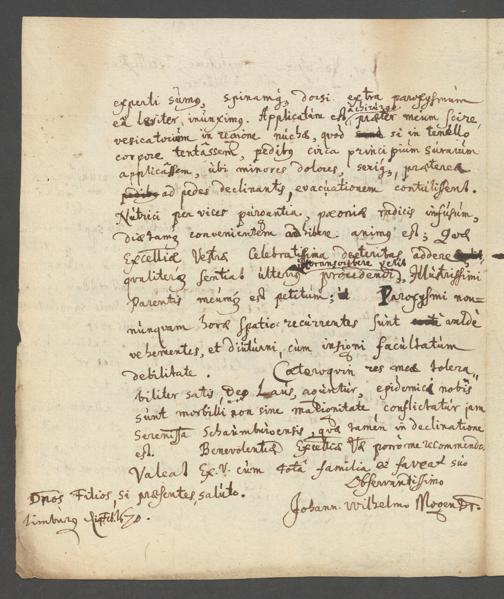 experti sumus, spinamq dorsi extra paroxysmum
ea leviter inunximo. Applicatum est, præter meum scire,
à chirurgo
vesicatorium in regione nuchæ, quod si in tenello
corpore tentassem, pedibus circa principium surarum
applicassem, ubi minores dolores, seriq, præterea
ad pedes declinantis, evacuationem contulissent.
Nutrici per vices purgantia, pæoniæ radicis infusum,
diætamq convenientem adhibere animg est; Quæ
Excellæ Vestræ Celebratissima dexteritas addere
qualiterq sentiat ulterius procedendi, Illustrissimi
Parentis meumq est petitum; Paroxysmi non=
nunquam horæ spatio recurrentes sunt valdè
vehementes, et diuturni, cum insigni facultatum
debilitate. Cæteroquin res meæ tolera
biliter satis, Deo Laus, aguntur, epidemicè nobis
sunt morbilli non sine malignitate, conflictatur jam
Serenissa Schaumburgensis, quæ tamen in declinatione
est. Benevolentiæ Excellæ Væ porro me recommendo.
Valeat Ex. V. cum tota familia et faveat suo
Observantissimo
Dnos Filios, si præsentes, saluto.
Johann. Wilhelmo Mogen Dr.
Limburg